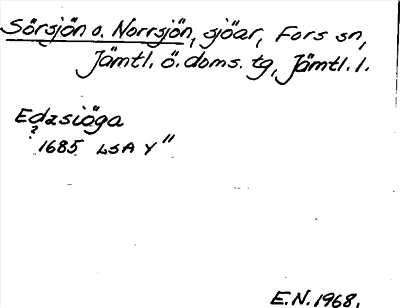 Sörsjön o. Norrsjön, sjöar, Fors sn,
Jämtl. ö. doms. tg, Jämtl. l.
Edzsiöga
?
1685 LSA Y"
E.N. 1968.